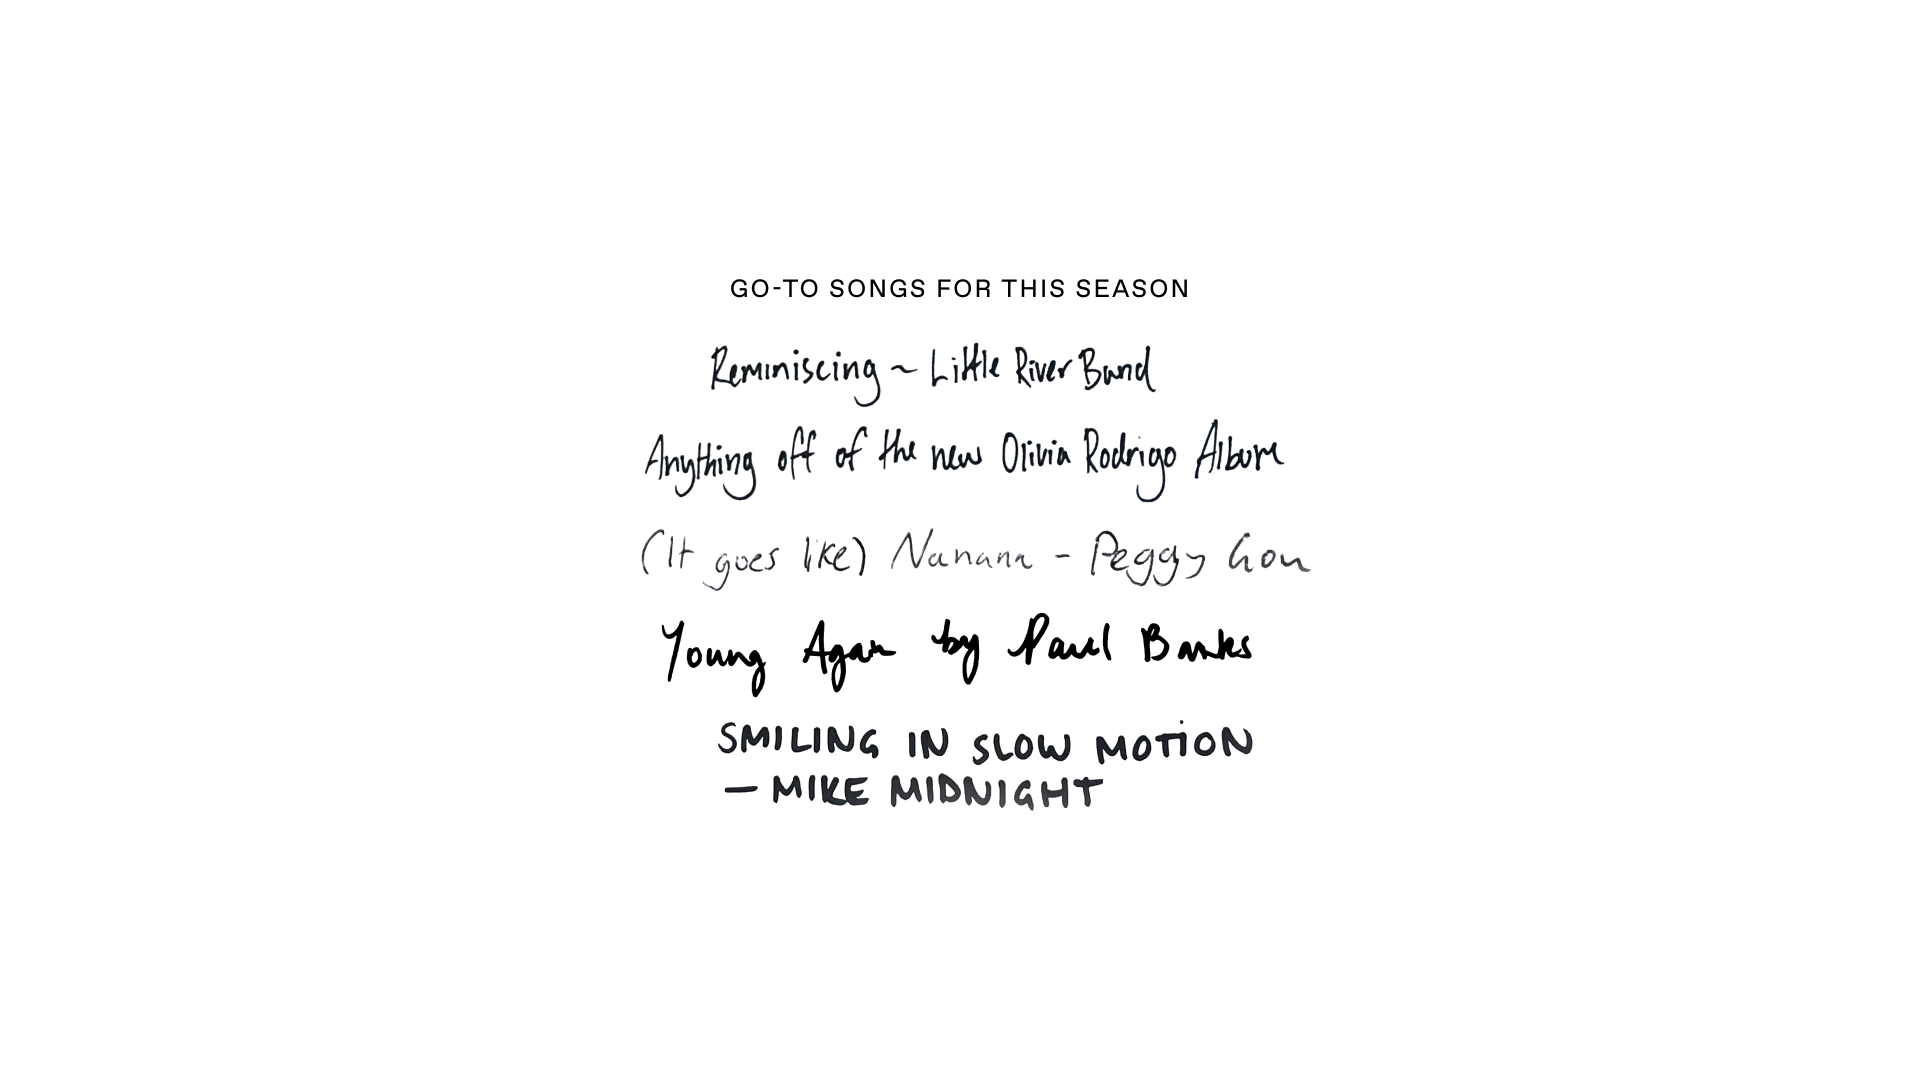 GO-TO SONGS FOR THIS SEASON
Reminiscing ~ Little River Band
Anything off of the new Olivia Rodrigo Album
(It goes like) Nanana - Peggy Gou
Young Again by Paul Banks
SMILING IN SLOW MOTION
– MIKE MIDNIGHT